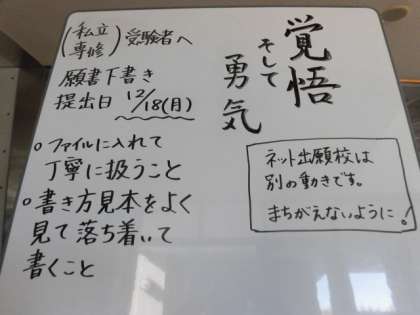 (私立
専修) 受験者へ
願書下書き
提出日 12/18(月)
○ファイルに入れて
丁寧に扱うこと
○書き方見本をよく
見て落ち着いて
書くこと
覚悟
そして
勇気
ネット出願校は
別の動きです。
まちがえないように!